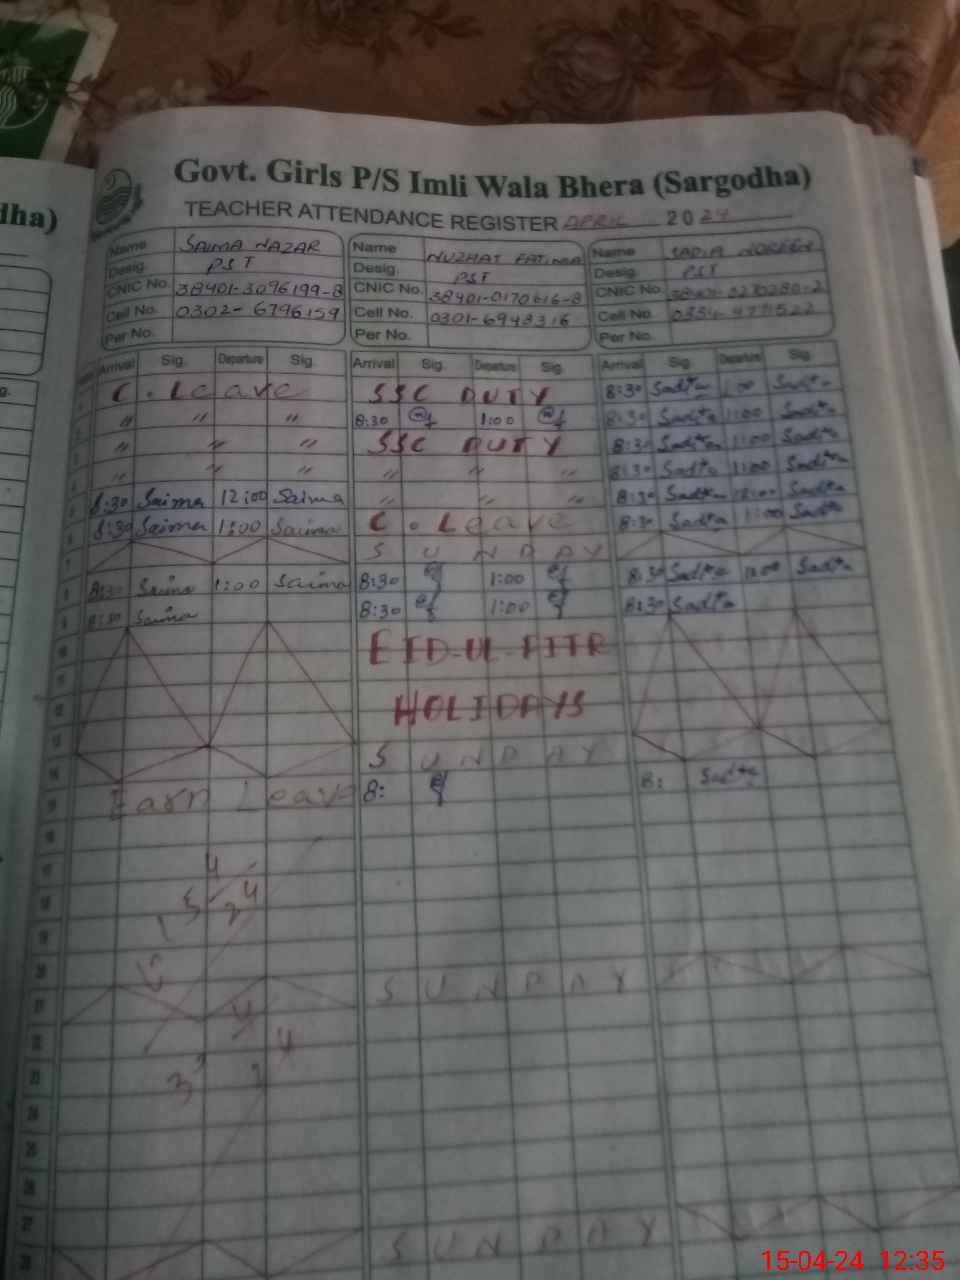 dha)
Govt. Girls P/S Imli Wala Bhera (Sargodha)
TEACHER ATTENDANCE REGISTER APRIL 2024
Name SAIMA NAZAR Name NUZHAT FATIMA Name SADIA NOREEN
Desig. PST Desig. PST Desig. PST
CNIC No. 38401-3096199-8 CNIC No. 38401-0170616-8 CNIC No.
Cell No. 0302-6796159 Cell No. 0301-6943316 Cell No.
Per No. Per No. Per No.
Arrival Sig. Departure Sig. Arrival Sig. Departure Sig. Arrival Sig. Departure Sig.
1 C. Leave SSC DUTY 8:30 Sadia 1:00 Sadia
2 " " " 8:30 1:00 8:30 Sadia 1:00 Sadia
3 " " " SSC DUTY 8:30 Sadia 1:00 Sadia
4 " " " " " " 8:30 Sadia 1:00 Sadia
5 8:30 Saima 12:00 Saima " " " 8:30 Sadia 12:00 Sadia
6 8:30 Saima 1:00 Saima C. Leave 8:30 Sadia 1:00 Sadia
7 SUNDAY
8 8:30 Saima 1:00 Saima 8:30 1:00 8:30 Sadia Sadia
9 8:30 Saima 8:30 1:00 8:30 Sadia
10 EID-UL-FITR
11
12 HOLIDAYS
13
14 SUNDAY
15 Earn Leave 8: 8: Sadia
16
17
18
19
20
21 SUNDAY
22
23
24
25
26
27
28 SUNDAY
15-04-24 12:35